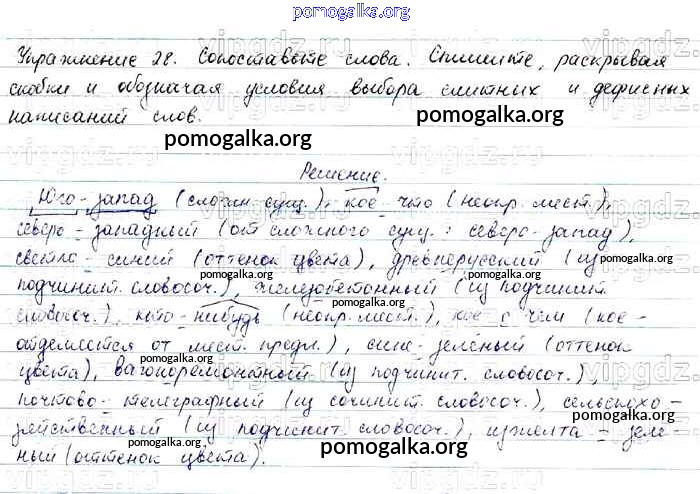 pomogalka.org
Упражнение 28. Сопоставьте слова. Спишите, раскрывая
скобки и обозначая условия выбора слитных и дефисных
написаний слов.
pomogalka.org
pomogalka.org
Решение.
Юго-запад (сложн. сущ.), кое-что (неопр. мест.),
pomogalka.org
северо-западный (от сложного сущ.: северо-запад),
светло-синий (оттенок цвета), древнерусский (из
pomogalka.org
pomogalka.org
подчинит. словосоч.), железобетонный (из подчинит.
словосоч.), кто-нибудь (неопр. мест.), кое с чем (кое-
pomogalka.org
отделяется от мест. предл.), сине-зелёный (оттенок
pomogalka.org
цвета), вагоноремонтный (из подчинит. словосоч.),
pomogalka.org
почтово-телеграфный (из сочинит. словосоч.), сельскохо-
pomogalka.org
зяйственный (из подчинит. словосоч.), изжелта-зелё-
ный (оттенок цвета).
pomogalka.org
pomogalka.org